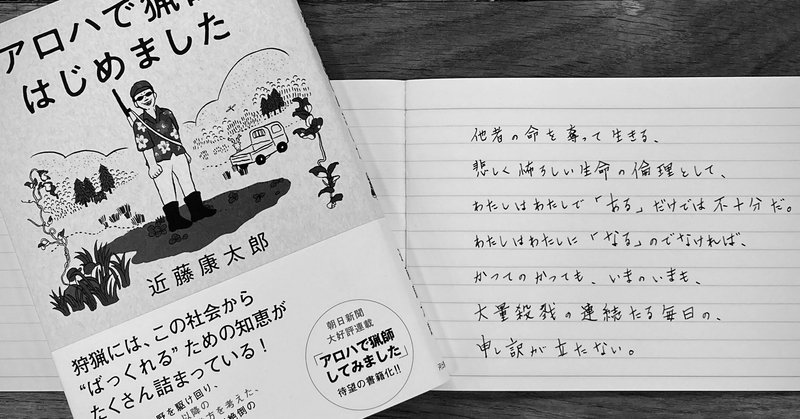 アロハで猟師
はじめました
近藤康太郎
狩猟には、この社会から
“ばっくれる”ための知恵が
たくさん詰まっている！
野を駆け回り、
以降の
方を考えた、
絶倒の
朝日新聞
大好評連載
「アロハで猟師
してみました」
待望の書籍化!!
他者の命を奪って生きる、
悲しく怖ろしい生命の倫理として、
わたしはわたしで「ある」だけでは不十分だ。
わたしはわたしに「なる」のでなければ、
かつてのかつても、いまのいまも、
大量殺戮の連続たる毎日の、
申し訳が立たない。